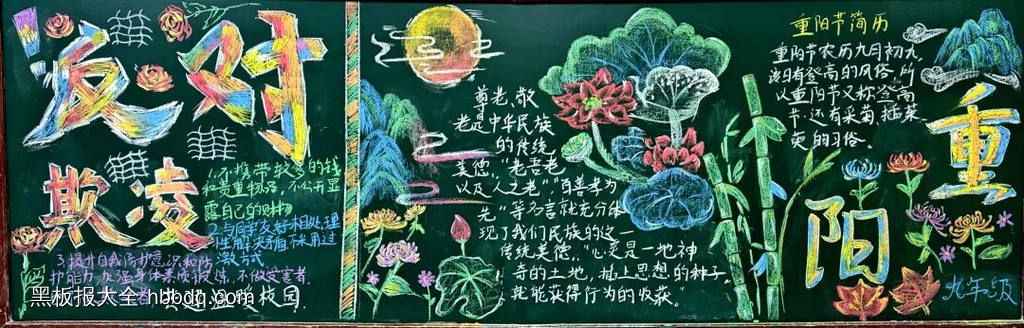 反对
欺凌
1.不携带较多的钱
和贵重物品,不公开显
露自己的财物
2.与同学友好相处,理
激方式
3.提升自我防护意识和防
护能力,加强身体素质锻炼,不做受害者
校园
黑板报大全 hbbdq.com
尊老、敬
老是中华民族
的传统
美德,“老吾老
以及人之老”“百善孝为
先”等名言就充分体
现了我们民族的这一
传统美德,“心灵是一地神
奇的土地,播上思想的种子,
就能获得行为的收获。”
重阳节简历
重阳节农历九月初九,
汉族有登高的风俗,所
以重阳节又称登高
节,还有采菊,插茱
萸的习俗。
重
阳
九年级